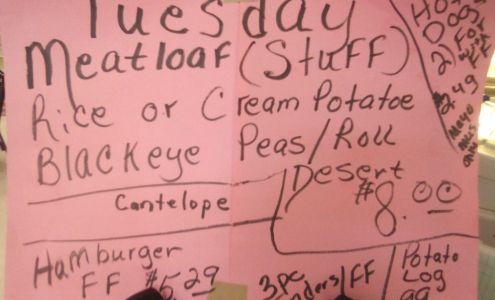 Tuesday
Meatloaf (Stuff)
Rice or Cream Potatoe
Blackeye Peas/Roll
Desert
$8.00
Cantelope
Hot
Dogs
2) For
2.49
Mayo
Hamburger
FF $5.29
3pc
FF
Potato
Log